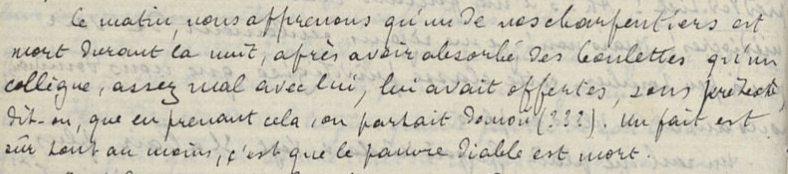 Ce matin, nous apprenons qu'un de nos charpentiers est
mort durant la nuit, après avoir absorbé des boulettes qu'un
collègue, assez mal avec lui, lui avait offertes, sous prétexte,
dit-on, que en prenant cela, on parlait (???). Un fait est
sûr tout au moins, c'est que le pauvre diable est mort.